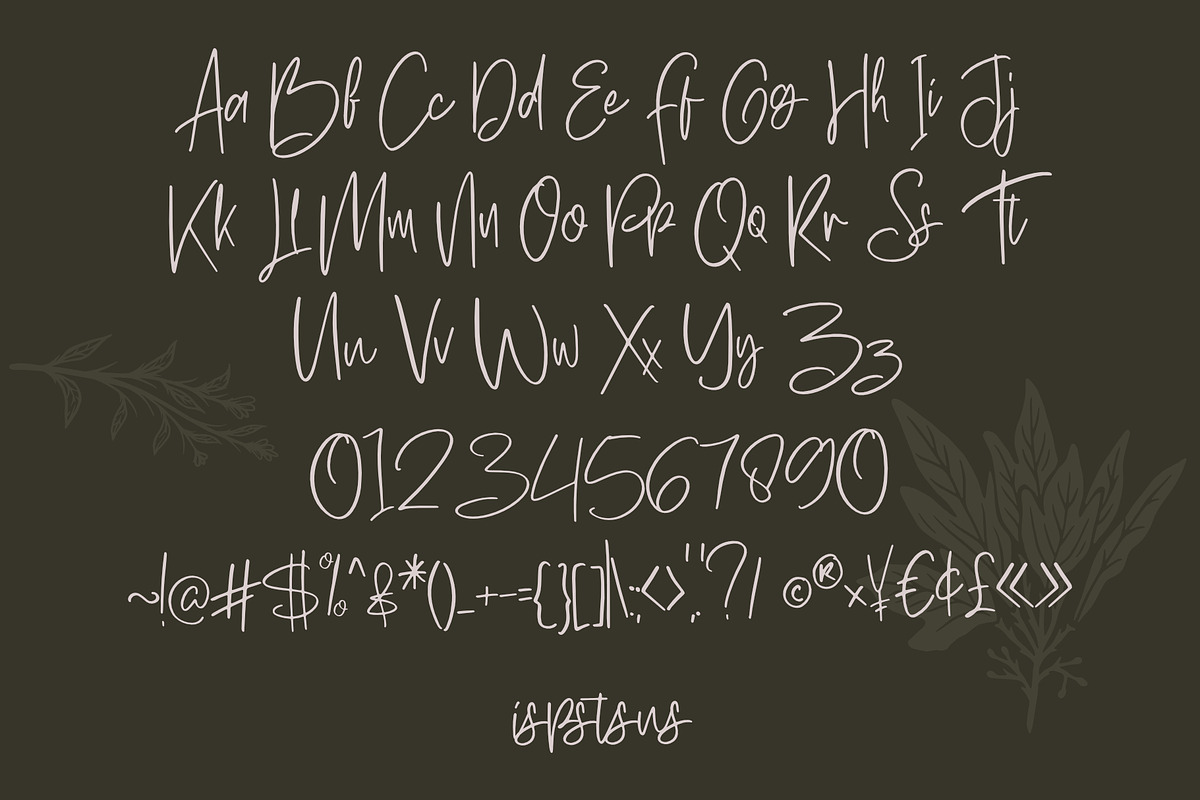 Aa Bb Cc Dd Ee Ff Gg Hh Ii Jj
Kk Ll Mm Nn Oo Pp Qq Rr Ss Tt
Uu Vv Ww Xx Yy Zz
01234567890
~!@#$%^&*()_+-={}[]|\:;<>,.'"?/ ©®×¥€¢£«»
ispstsus